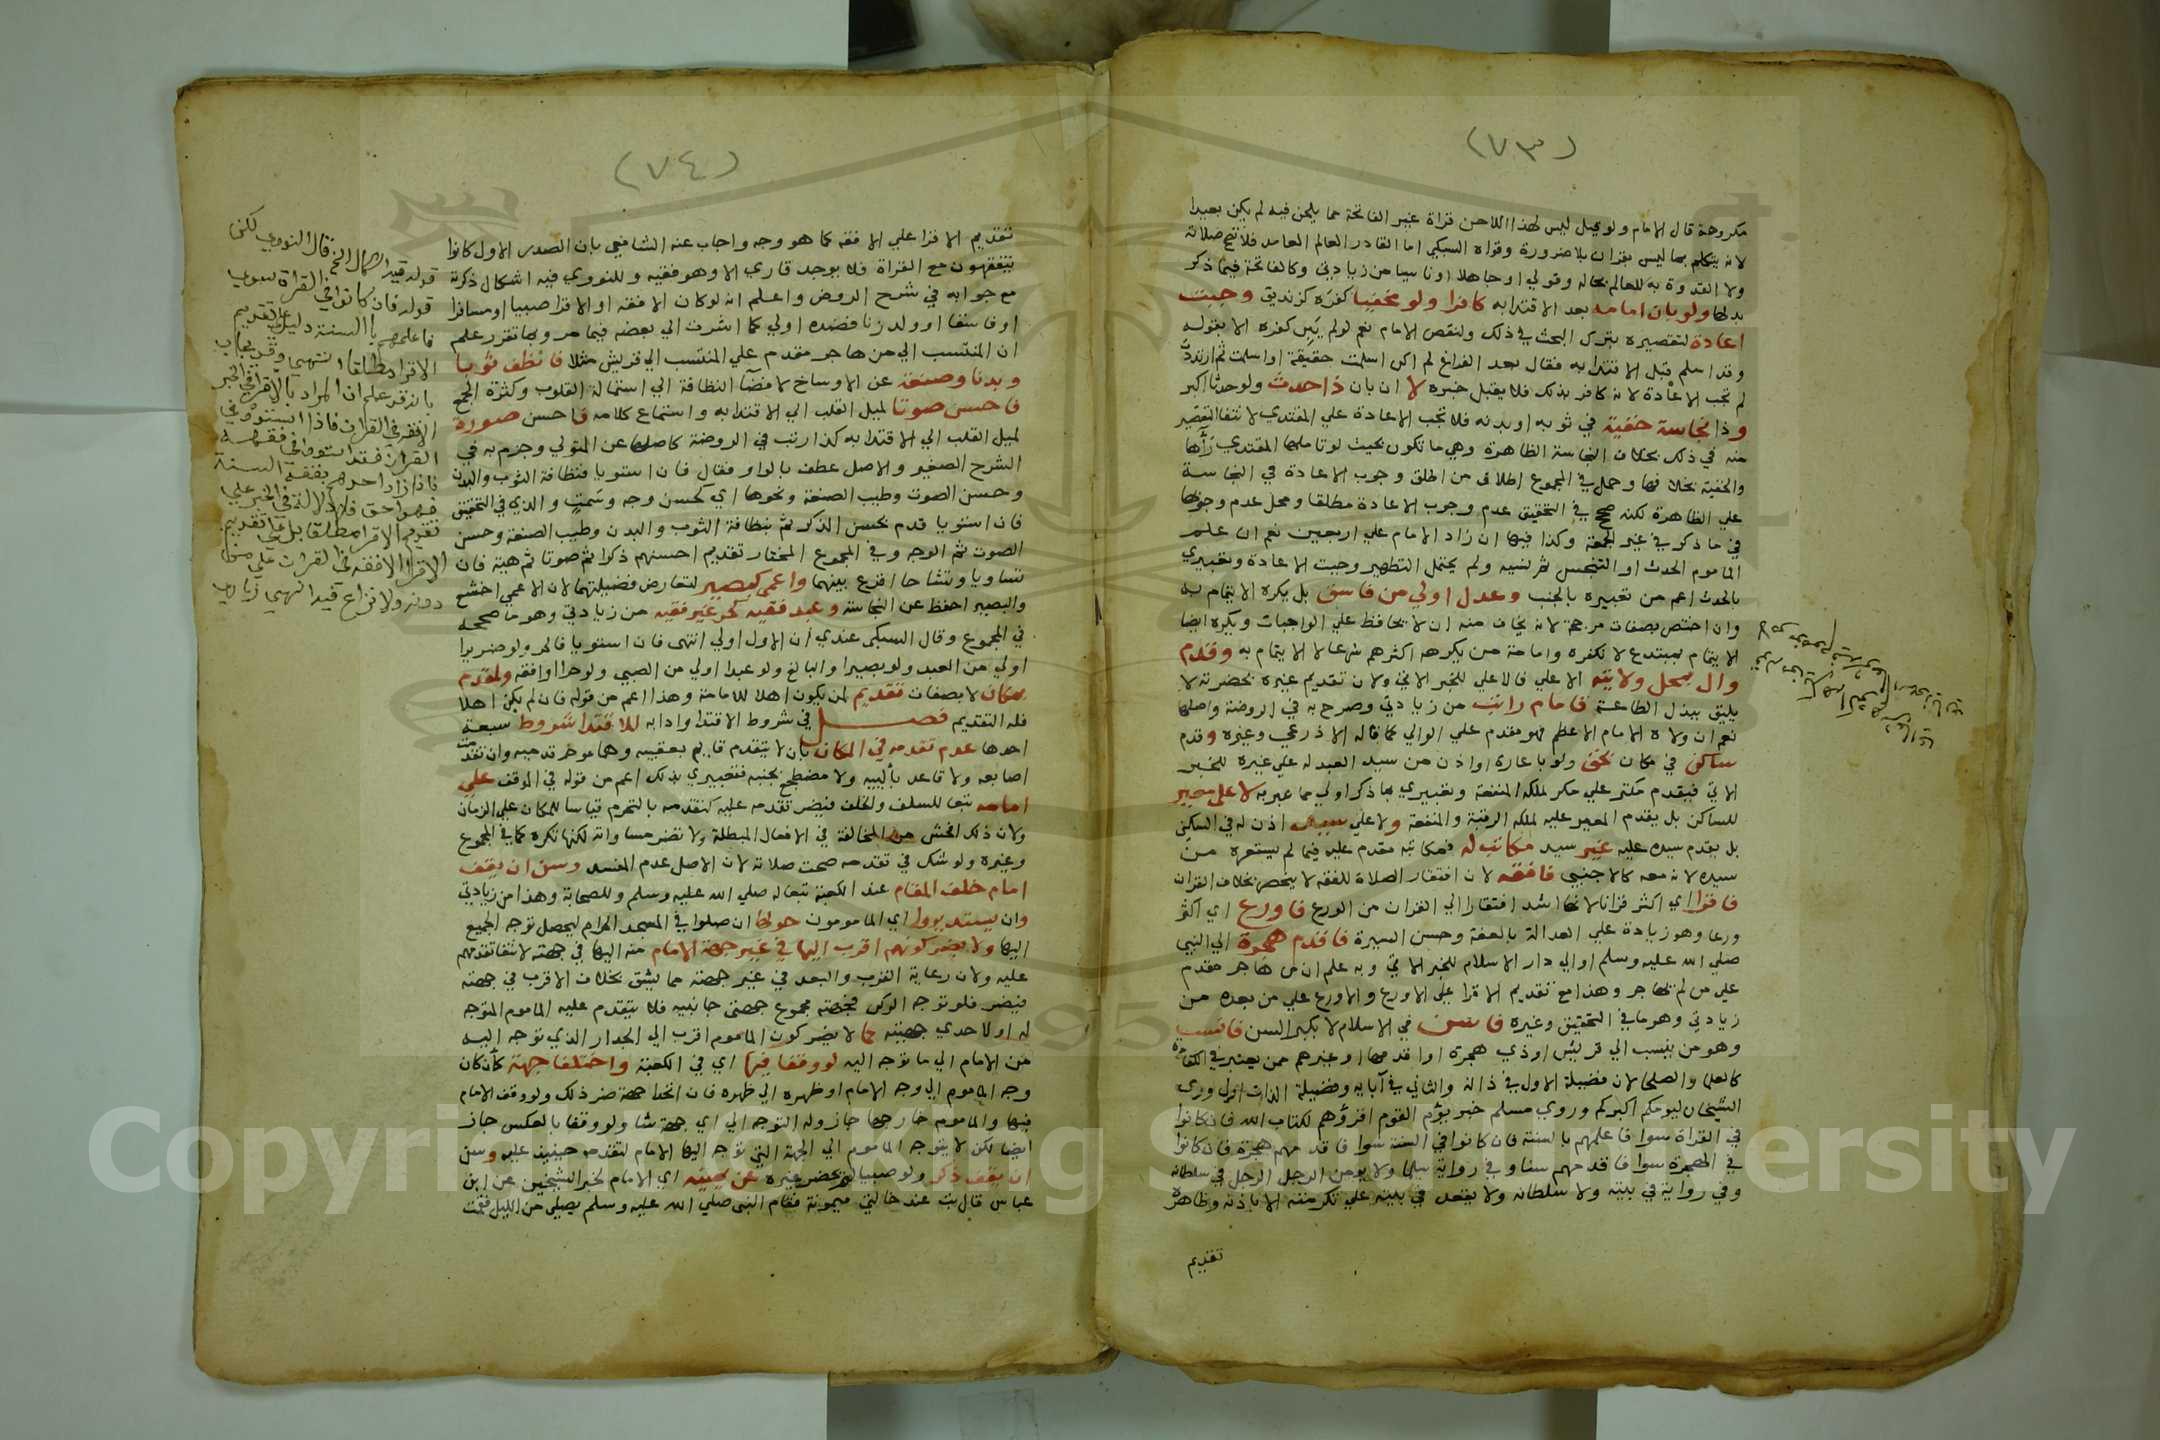 (٧٣)
مكروهة قال الامام ولو قيل ليس لهذا اللاحن قراة غير الفاتحة مما يلحن فيه لم يكن بعيدا
لانه يتكلم بما ليس بقران بلا ضرورة وقواه السبكي اما القادر العالم العامد فلا تصح صلاته
ولا القدوة به للعالم بحاله وقولي او جاهلا او ناسيا من زيادتي وكالفاتحة فيما ذكر
بدلها ولو بان امامه بعد الاقتدا به كافرا ولو مخفيا كفره كزنديق وجبت
اعادة لتقصيره بترك البحث في ذلك ولنقص الامام نعم لو لم يبن كفره الا بقوله
وقد اسلم قبل الاقتدا به فقال بعد الفراغ لم اكن اسلمت حقيقة او اسلمت ثم ارتددت
لم تجب الاعادة لانه كافر بذلك فلا يقبل خبره لا ان بان ذا حدث ولو حدثا اكبر
وذا نجاسة خفية في ثوبه او بدنه فلا تجب الاعادة علي المقتدي لانتفا التقصير
منه في ذلك بخلاف النجاسة الظاهرة وهي ما تكون بحيث لو تاملها المقتدي رآها
والخفية بخلافها وحمل في المجموع اطلاق من اطلق وجوب الاعادة في النجاسة
علي الظاهرة لكنه صحح في التحقيق عدم وجوب الاعادة مطلقا ومحل عدم وجوبها
في ما ذكر في غير الجمعة وكذا فيها ان زاد الامام علي اربعين نعم ان علم
الماموم الحدث او التنجس ثم نسيه ولم يحتمل التطهير وجبت الاعادة وتعبيري
بالحدث اعم من تعبيره بالجنب وعدل اولي من فاسق بل يكره الايتمام به
وان اختص بصفات مرجحة لانه يخاف منه ان لا يحافظ علي الواجبات ويكره ايضا
الايتمام بمبتدع لا نكفره وامامة من يكرهه اكثرهم شرعا لا الايتمام به وقدم
وال بمحل ولايته الاعلي فالاعلي للخبر الاتي ولان تقديم غيره بحضرته لا
يليق ببذل الطاعة فامام راتب من زيادتي وصرح به في الروضة واصلها
نعم ان ولاه الامام الاعظم فهو مقدم علي الوالي كما قاله الاذرعي وغيره وقدم
ساكن في مكان بحق ولو باعارة او اذن من سيد العبد له علي غيره للخبر
الاتي فيقدم مكتر علي مكر لملكه المنفعة وتعبيري بما ذكر اولي مما عبر به لا علي معير
للساكن بل يقدم المعير عليه لملكه الرقبة والمنفعة ولا علي سيد اذن له في السكن
بل يقدم سيده عليه غير سيد مكاتب له فمكاتبه مقدم عليه فيما لم يستعره من
سيده لانه معه كالاجنبي فافقه لان افتقار الصلاة للفقه لا ينحصر بخلاف القران
فاقرا اي اكثر قرانا لانها اشد افتقارا الي القران من الورع فاورع اي اكثر
ورعا وهو زيادة علي العدالة بالعفة وحسن السيرة فاقدم هجرة الي النبي
صلي الله عليه وسلم او الي دار الاسلام للخبر الاتي وبه علم ان من هاجر مقدم
علي من لم يهاجر وهذا مع تقديم الاقرا علي الاورع والاورع علي من بعده من
زيادتي وهو ما في التحقيق وغيره فاسن في الاسلام لا بكبر السن فانسب
وهو من ينسب الي قريش او ذي هجرة او اقدمها او غيرهم ممن يعتبر في الكفاءة
كالعلما والصلحا لان فضيلة الاول في ذاته والثاني في آبايه وفضيلة الذات اولي وروي
الشيخان ليومكم اكبركم وروي مسلم خبر يؤم القوم اقرؤهم لكتاب الله فان كانوا
في القراة سوا فاعلمهم بالسنة فان كانوا في السنة سوا فاقدمهم هجرة فان كانوا
في الهجرة سوا فاقدمهم سنا وفي رواية سلما ولا يومن الرجل الرجل في سلطانه
وفي رواية في بيته ولا سلطانه ولا يقعد في بيته علي تكرمته الا باذنه وظاهره
تقديم
(٧٤)
تقديم الاقرا علي الافقه كما هو وجه واجاب عنه الشافعي بان الصدر الاول كانوا
يتفقهون مع القراة فلا يوجد قاري الا وهو فقيه وللنووي فيه اشكال ذكرته
مع جوابه في شرح الروض واعلم انه لو كان الافقه او الاقرا صبيا او مسافرا
او فاسقا او ولد زنا فضده اولي كما اشرت الي بعضه فيما مر وبما تقرر علم
ان المنتسب الي من هاجر مقدم علي المنتسب الي قريش مثلا فانظف ثوبا
وبدنا وصنعة عن الاوساخ لافضا النظافة الي استمالة القلوب وكثرة الجمع
فاحسن صوتا لميل القلب الي الاقتدا به واستماع كلامه فاحسن صورة
لميل القلب الي الاقتدا به كذا رتب في الروضة كاصلها عن المتولي وجزم به في
الشرح الصغير والاصل عطف بالواو فقال فان استويا فنظافة الثوب والبدن
وحسن الصوت وطيب الصنعة ونحوها اي كحسن وجه وسمت والذي في التحقيق
فان استويا قدم بحسن الذكر ثم بنظافة الثوب والبدن وطيب الصنعة وحسن
الصوت ثم الوجه وفي المجموع المختار تقديم احسنهم ذكرا ثم صوتا ثم هية فان
تساويا وتشاحا اقرع بينهما واعمي كبصير لتعارض فضيلتهما لان الاعمي اخشع
والبصير احفظ عن النجاسة وعبد فقيه كحر غير فقيه من زيادتي وهو ما صححه
في المجموع وقال السبكي عندي ان الاول اولي انتهي فان استويا فالحر ولو ضريرا
اولي من العبد ولو بصيرا والبالغ ولو عبدا اولي من الصبي ولو حرا او افقه ولمقدم
بمكان لا بصفات تقديم لمن يكون اهلا للامامة وهذا اعم من قوله فان لم يكن اهلا
فله التقديم فصل في شروط الاقتدا وادابه للاقتدا شروط سبعة
احدها عدم تقدمه في المكان بان لا يتقدم قايم بعقبيه وهما موخر قدميه وان تقدمت
اصابعه ولا قاعد بألييه ولا مضطجع بجنبه فتعبيري بذلك اعم من قوله في الموقف علي
امامه تبعا للسلف والخلف فيضر تقدمه عليه كتقدمه بالتحرم قياسا للمكان علي الزمان
ولان ذلك افحش من المخالفة في الافعال المبطلة ولا تضر مساواته لكنها تكره كما في المجموع
وغيره ولو شك في تقدمه صحت صلاته لان الاصل عدم المفسد وسن ان يقف
امام خلف المقام عند الكعبة تبعا له صلي الله عليه وسلم وللصحابة وهذا من زيادتي
وان يستديروا اي المامومون حولها ان صلوا في المسجد الحرام ليحصل توجه الجميع
اليها ولا يضر كونهم اقرب اليها في غير جهة الامام منه اليها في جهته لانتفا تقدمهم
عليه ولان رعاية القرب والبعد في غير جهته مما يشق بخلاف الاقرب في جهته
فيضر فلو توجه الركن فجهته مجموع جهتي جانبيه فلا يتقدم عليه الماموم المتوجه
له او لاحدي جهتيه كما لا يضر كون الماموم اقرب الي الجدار الذي توجه اليه
من الامام الي ما توجه اليه لو وقفا فيها اي في الكعبة واختلفا جهة كأن كان
وجه الماموم الي وجه الامام او ظهره الي ظهره فان اتحدا جهة ضر ذلك ولو وقف الامام
فيها والماموم خارجها جاز وله التوجه الي اي جهة شا ولو وقفا بالعكس جاز
ايضا لكن لا يتوجه الماموم الي الجهة التي توجه اليها الامام لتقدمه حينيذ عليه وسن
ان يقف ذكر ولو صبيا لم يحضر غيره عن يمينه اي الامام لخبر الشيخين عن ابن
عباس قال بت عند خالتي ميمونة فقام النبي صلي الله عليه وسلم يصلي من الليل فقمت
قال النووي لكن
قوله فان كانوا في القراة سوا
فاعلمهم بالسنة دليل علي تقديم
الاقرا مطلقا انتهي وقد يجاب
بانه قد علم ان المراد بالاقرا في الخبر
الافقه في القران فاذا استووا في
القران فقد استووا في فقهه
فاذا زاد احدهم بفقه السنة
فهو احق فلا دلالة في الخبر علي
تقديم الاقرا مطلقا بل علي تقديم
الاقرا الافقه في القران علي من
دونه ولا نزاع فيه انتهي زيادي
Copyright © King Saud University